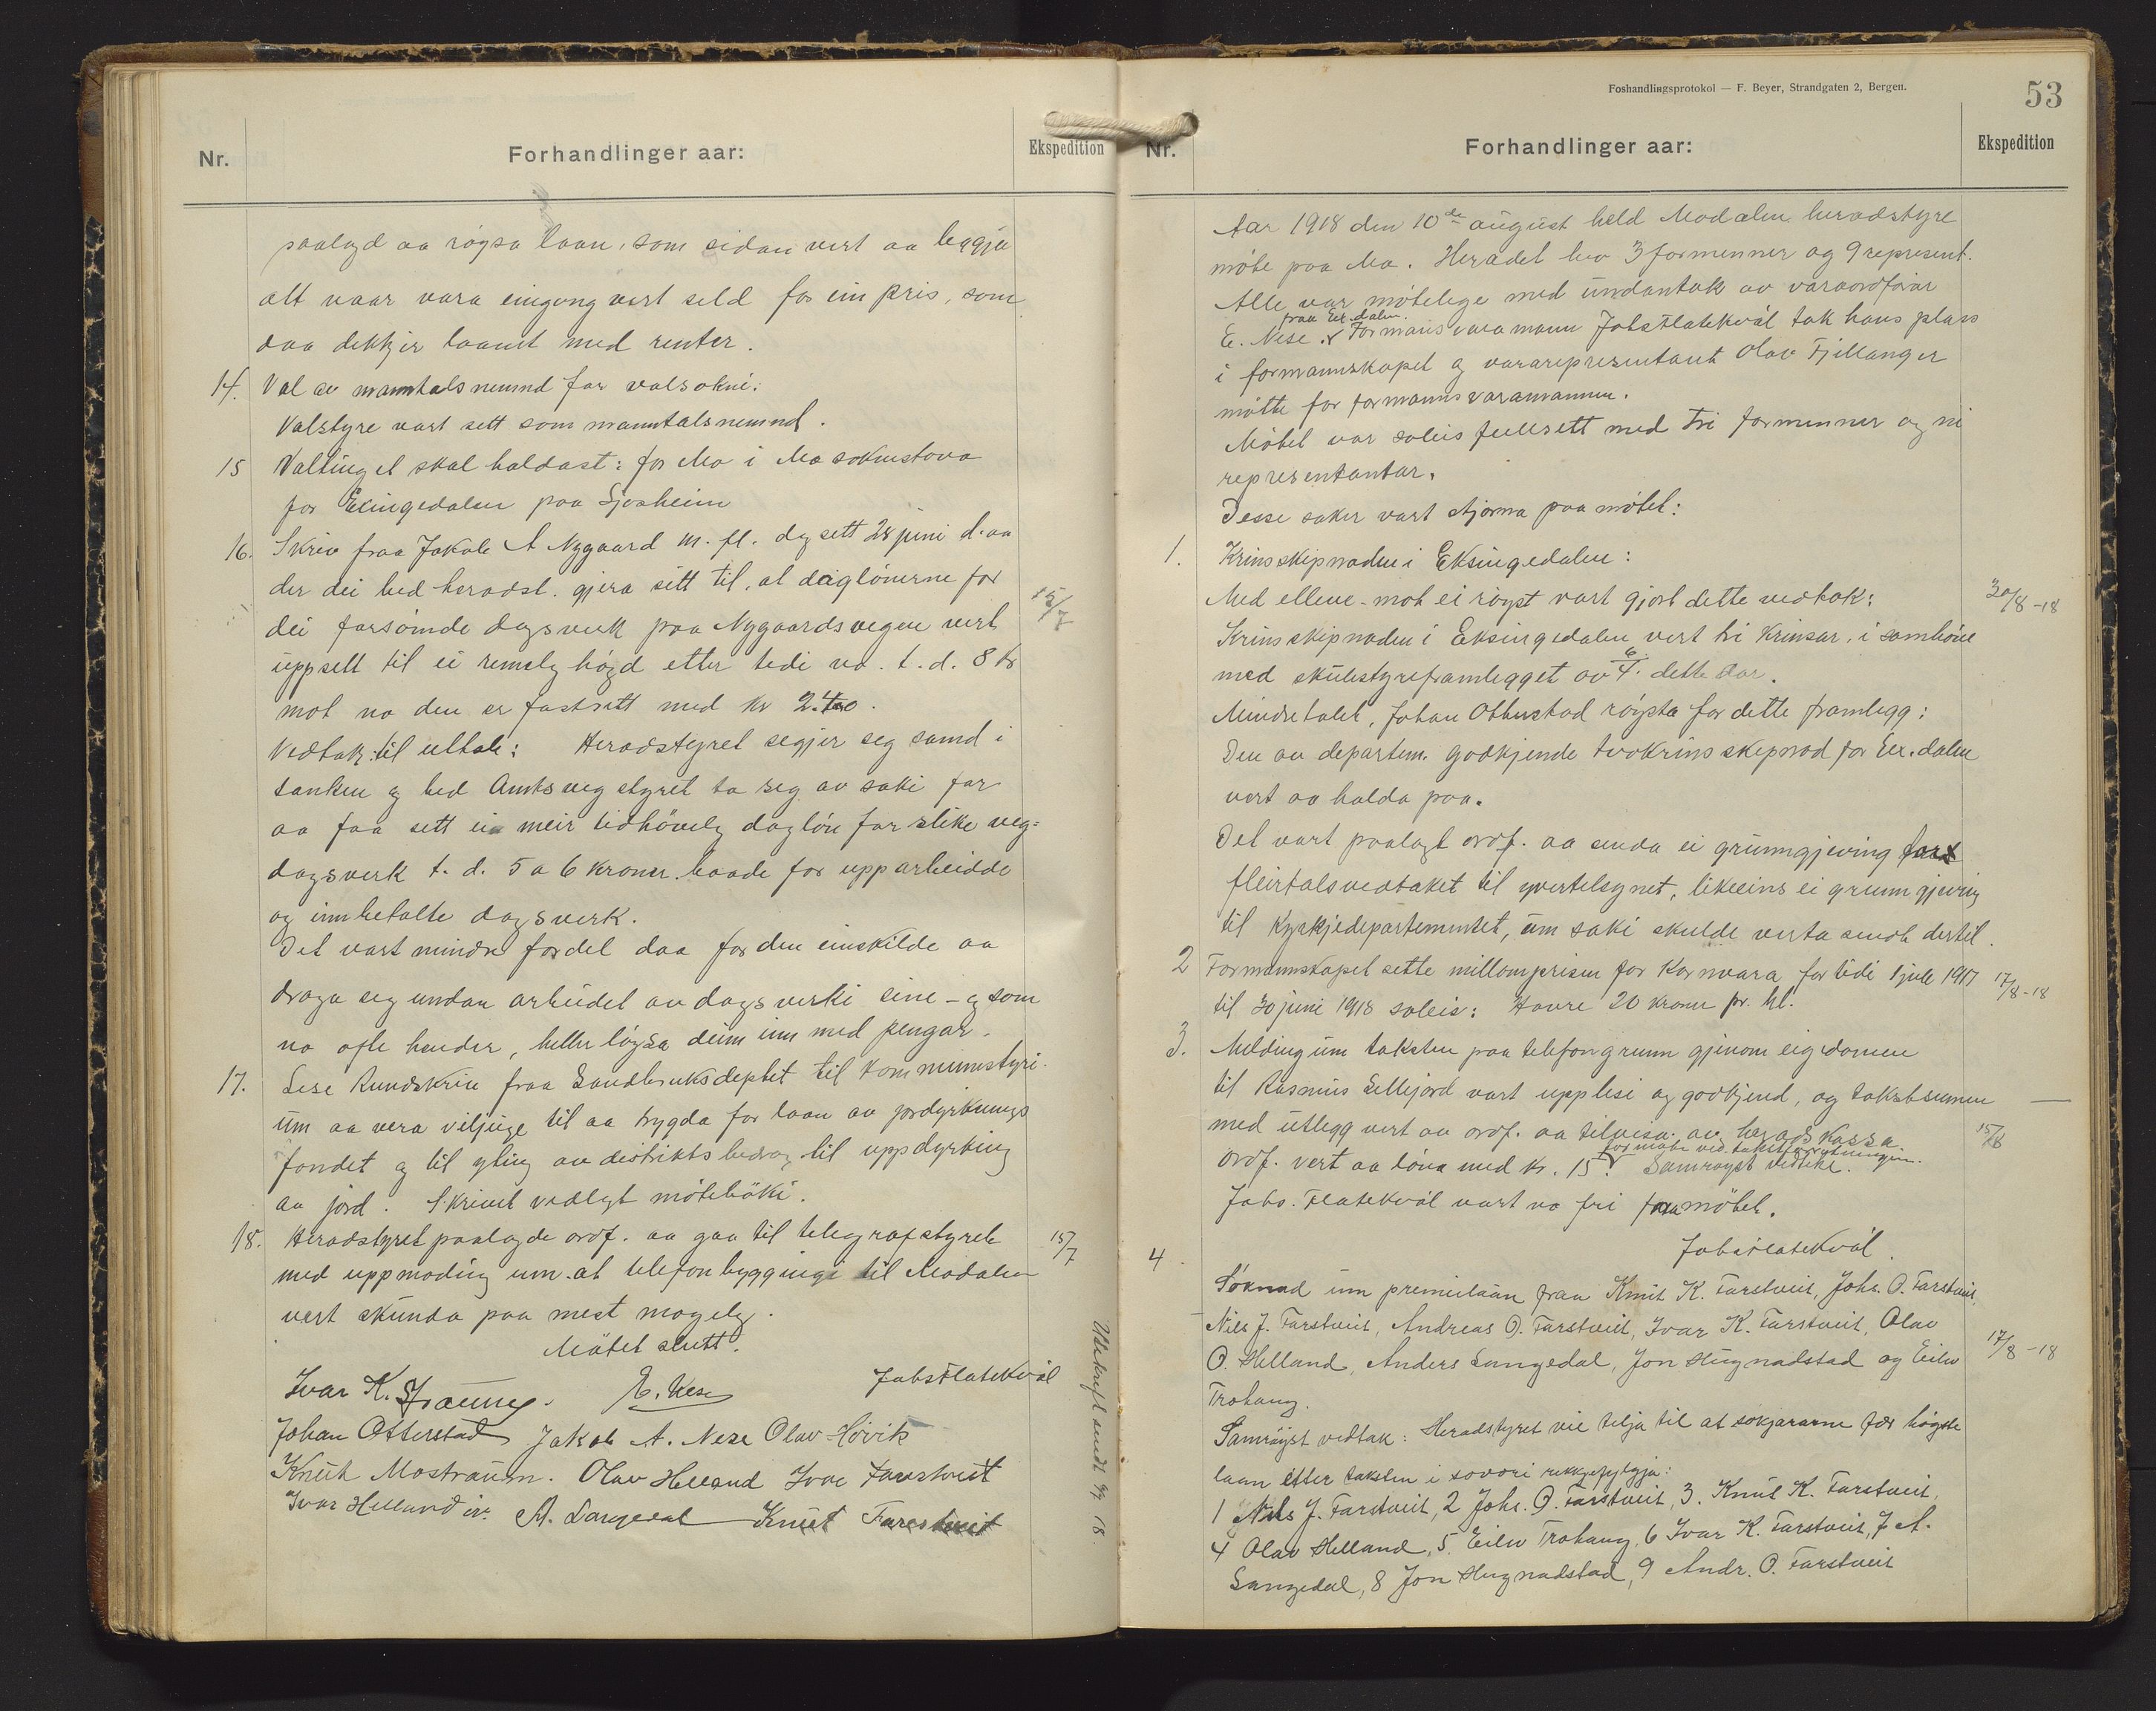 Nr.
Forhandlinger aar:
Ekspedition
paalagd aa røysa laan, som sidan vert aa leggja
alt naar vara eingong vert seld for ein pris, som
daa dekkjer laanet med renter.
14. Val av manntalsnemnd for valsokni:
Valstyre vart sett som manntalsnemnd.
15 Valtinget skal haldast: for Mo i Mo soknestova
for Eksingedalen paa Sjosheim
16. Skriv fraa Jakob A Nygaard m. fl. dagsett 28 juni d. aa
der dei bed heradst. gjera sitt til, at daglönerne for
dei forsömde dagsverk paa Nygaardsvegen vert
15/7
uppsett til ei rimeleg högd etter tidi no. t. d. 8 kr
mot no den er fastsett med kr 2.40.
Vedtak til uttale: Heradstyret segjer seg samd i
tanken og bed Amtsvegstyret ta seg av saki for
aa faa sett ei meir tidhöveleg daglön for slike veg=
dagsverk t. d. 5 a 6 kroner baade for upparbeidde
og innbetalte dagsverk.
Det vart mindre fordel daa for den einskilde aa
draga seg undan arbeidet av dagsverki sine - og som
no ofte hender, heller löysa deim inn med pengar.
17. Lese Rundskriv fraa Landbruksdeptet til kommunestyri
um aa vera viljuge til aa trygda for laan av jordyrkings
fondet og til yting av distriktsbidrag til uppdyrking
av jord. Skrivet vedlagt mötebóki.
18. Heradstyret paalagde ordf. aa gaa til telegrafstyret
15/7
med uppmoding um at telefonbyggingi til Modalen
vert skunda paa mest mogeleg.
Mötet slutt.
Ivar K. Straume. E. Nese Johs Flatekvål
Johan Otterstad Jakob A. Nese Olav Hövik
Knut Mostraum. Olav Helland Ivar Farestveit
Ivar Helland A. Langedal Knut Farestveit
Utskrift sendt 18.
Foshandlingsprotokol — F. Beyer, Strandgaten 2, Bergen.
53
Nr.
Forhandlinger aar:
Ekspedition
Aar 1918 den 10de august held Modalen heradstyre
möte paa Mo. Heradet hev 3 formenner og 9 represent.
Alle var mötelege med undantak av varaordförar
fraa Eks.dalen.
E. Nese. Formansvaramann Johs Flatekvål tok hans plass
i formannskapet og vararepresentant Olav Fjellanger
mötte for formannsvaramannen.
Mötet var soleis fullsett med tri formenner og ni
representantar.
Desse saker vart avgjorna paa mötet:
1. Krinsskipnaden i Eksingedalen:
Med elleve mot ei röyst vart gjort dette vedtak:
30/8-18
Krinsskipnaden i Eksingedalen vert tri krinsar, i samhöve
med skulestyreframlegget av 6/4. dette aar.
Mindretalet, Johan Otterstad röysta for dette framlegg:
Den av departem. godkjende tvokrinsskipnad for Eks.dalen
vert aa halda paa.
Det vart paalagt ordf. aa senda ei grunngjeving for
fleirtalsvedtaket til yvertilsynet, likeeins ei grunngjeving
til Kyrkjedepartementet, um saki skulde verta sendt dertil.
2 Formannskapet sette millomprisen for kornvara for tidi 1 juli 1917
17/8-18
til 30 juni 1918 soleis: Havre 20 kroner pr. hl.
3. Melding um taksten paa telefongrunn gjenom eigedomen
til Rasmus Sellejord vart upplesi og godkjend, og takstsumen
med utlegg vert av ordf. aa tilvisa av heradskassa.
15/8
for möte ved takstforretningen.
Ordf. vert aa löna med kr. 15. Samröyst vedteke.
Johs. Flatekvål vart no fri fraa mötet.
Johs Flatekvål.
4.
Söknad um premielaan fraa Knut K. Farstveit, Johs. O. Farstveit,
Nils J. Farstveit, Andreas O. Farstveit, Ivar K. Farstveit, Olav
O. Helland, Anders Langedal, Jon Hugnadstad og Eiliv
17/8-18
Trohaug.
Samröyst vedtak: Heradstyret vil tilja til at sokjararne fær högste
laan etter taksten i sovori rekkjefylgja:
1 Nils J. Farstveit, 2 Johs. O. Farstveit, 3. Knut K. Farstveit,
4 Olav Helland, 5. Eiliv Trohaug, 6 Ivar K. Farstveit, 7 A.
Langedal, 8 Jon Hugnadstad, 9 Andr. O. Farstveit